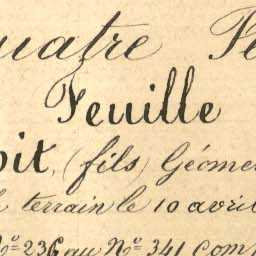 uatre Fe
Feuille
oit, (fils) Géome
terrain le 10 avril
N° 236 au N° 341 com